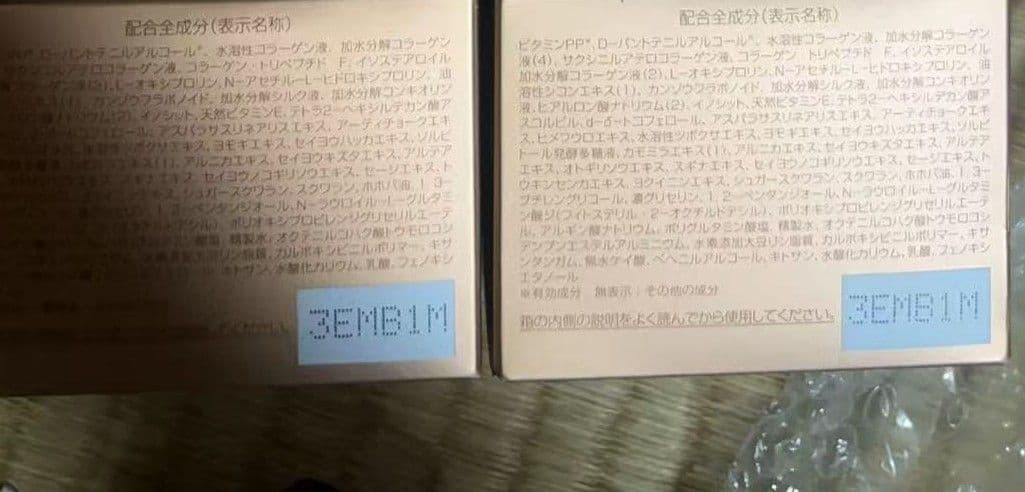 配合全成分(表示名称)
D-パントテニルアルコール*、水溶性コラーゲン液、加水分解コラーゲン
コラーゲン・トリペプチド F、イソステアロイル
L-オキシプロリン、N-アセチル-L-ヒドロキシプロリン、油
カンゾウフラボノイド、加水分解シルク液、加水分解コンキオリン
イノシット、天然ビタミンE、テトラ2-ヘキシルデカン酸ア
アスパラサスリネアリスエキス、アーティチョークエキ
ヨモギエキス、セイヨウハッカエキス、ソルビ
アルニカエキス、セイヨウキズタエキス、アルテア
スギナエキス、セイヨウノコギリソウエキス、セージエキス、ト
シュガースクワラン、スクワラン、ホホバ油、1,3-
1,2-ペンタンジオール、N-ラウロイル-L-グルタミ
ポリオキシプロピレンジグリセリルエーテ
精製水、オクテニルコハク酸トウモロコシ
カルボキシビニルポリマー、キサ
キトサン、水酸化カリウム、乳酸、フェノキシ
3EMB1M
配合全成分(表示名称)
ビタミンPP*、D-パントテニルアルコール*、水溶性コラーゲン液、加水分解コラーゲン
液(4)、サクシニルアテロコラーゲン液、コラーゲン・トリペプチド F、イソステアロイル
加水分解コラーゲン液(2)、L-オキシプロリン、N-アセチル-L-ヒドロキシプロリン、油
溶性シコンエキス(1)、カンゾウフラボノイド、加水分解シルク液、加水分解コンキオリン
液、ヒアルロン酸ナトリウム(2)、イノシット、天然ビタミンE、テトラ2-ヘキシルデカン酸ア
スコルビル、d-δ-トコフェロール、アスパラサスリネアリスエキス、アーティチョークエキ
ス、ヒメフウロエキス、水溶性ツボクサエキス、ヨモギエキス、セイヨウハッカエキス、ソルビ
トール発酵多糖液、カモミラエキス(1)、アルニカエキス、セイヨウキズタエキス、アルテア
エキス、オトギリソウエキス、スギナエキス、セイヨウノコギリソウエキス、セージエキス、ト
ウキンセンカエキス、ヨクイニンエキス、シュガースクワラン、スクワラン、ホホバ油、1,3-
ブチレングリコール、濃グリセリン、1,2-ペンタンジオール、N-ラウロイル-L-グルタミ
ン酸ジ(フィトステリル・2-オクチルドデシル)、ポリオキシプロピレンジグリセリルエーテ
ル、アルギン酸ナトリウム、ポリグルタミン酸塩、精製水、オクテニルコハク酸トウモロコシ
デンプンエステルアルミニウム、水素添加大豆リン脂質、カルボキシビニルポリマー、キサ
ンタンガム、無水ケイ酸、ベヘニルアルコール、キトサン、水酸化カリウム、乳酸、フェノキシ
エタノール
※有効成分 無表示:その他の成分
箱の内側の説明をよく読んでから使用してください。
3EMB1M